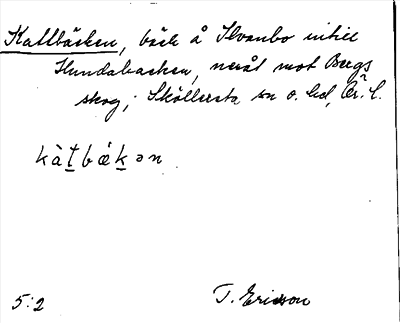 Kattbäcken, bäck å Ilvanbo intill
Hundabacken, neråt mot Bergs
skog; Sköllersta sn o. hd, Ör. l.
kàt̲bǽk̲ən
5:2 T. Ericson